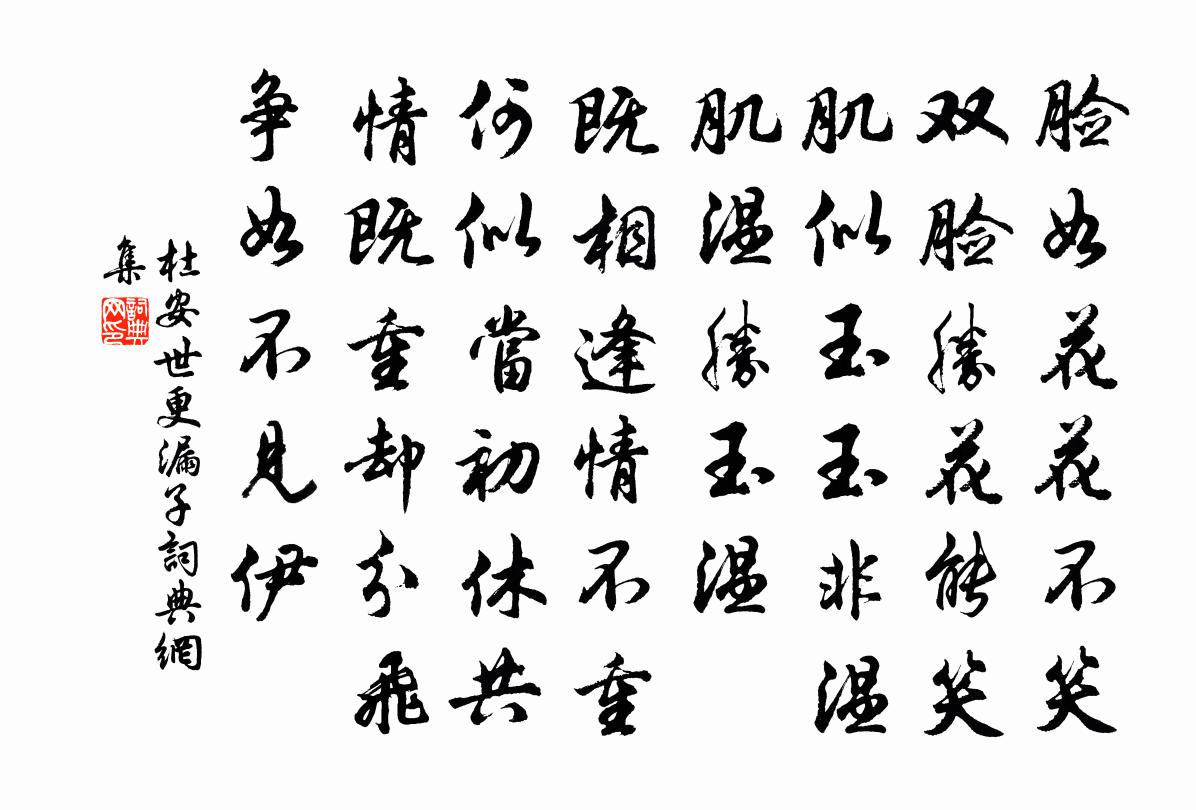 脸如花花不笑
双脸勝花能笑
肌似玉玉非温
肌温勝玉温
既相逢情不重
何似當初休共
情既重却分飛
争如不見伊
杜安世更漏子詞典網
集
詞典網印